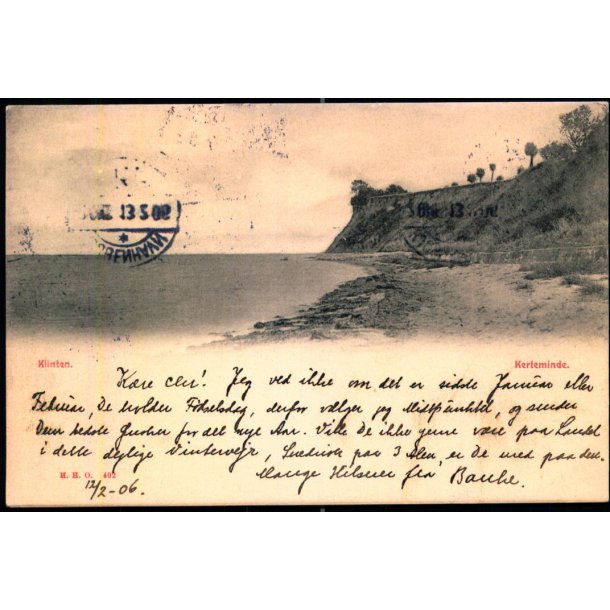 13 2 06
KJØBENHAVN
Klinten.
Kerteminde.
Kære Jeg ved ikke om det er sidste Januar eller
Februar, De holder Födselsdag, derfor vælger jeg og sender
Dem bedste Ønsker for det nye Aar. Ville De ikke gerne være paa Landet
i dette dejlige Vintervejr, paa 3 Alen, er De med paa den.
Mange Hilsner fra Bauke.
H. H. O. 402
12/2-06.